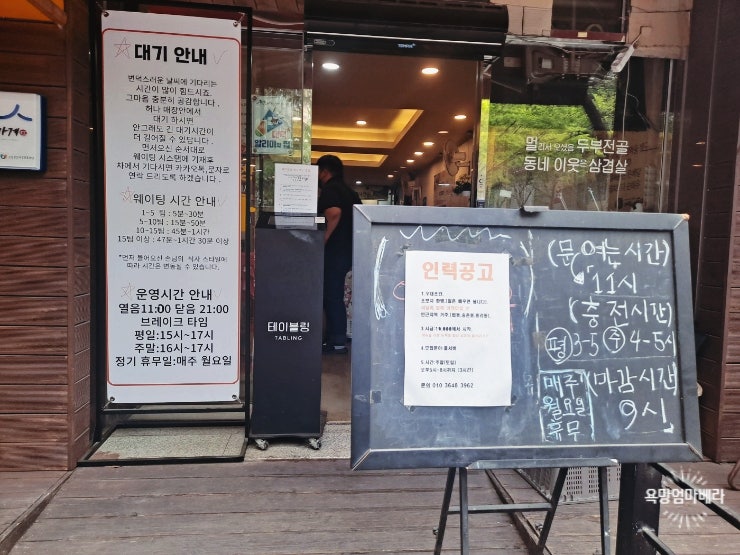 대기 안내
변덕스러운 날씨에 기다리는
시간이 많이 힘드시죠.
그마음 충분히 공감합니다.
허나 매장안에서
대기 하시면
안그래도 긴 대기시간이
더 길어질 수 있답니다.
먼저오신 순서대로
웨이팅 시스템에 기재후
차에서 기다시면 카카오톡,문자로
연락 드리도록 하겠습니다.
웨이팅 시간 안내
1~5 팀 : 5분~30분
5~10팀 : 15분~50분
10~15팀 : 45분~1시간
15팀 이상 : 47분~1시간 30분 이상
*먼저 들어오신 손님의 식사 스타일에
따라 시간은 변동될 수 있습니다.
운영시간 안내
열음11:00 닫음 21:00
브레이크 타임
평일:15시~17시
주말:16시~17시
정기 휴무일:매주 월요일
테이블링
TABLING
멀리서 오셨음 두부전골
동네 이웃은 삼겹살
인력공고
문의 010 3648 3962
(문 여는 시간)
11시
(충전시간)
평 3-5 주 4-5시
(마감시간)
9시
매주
월요일
휴무
욕망엄마베라